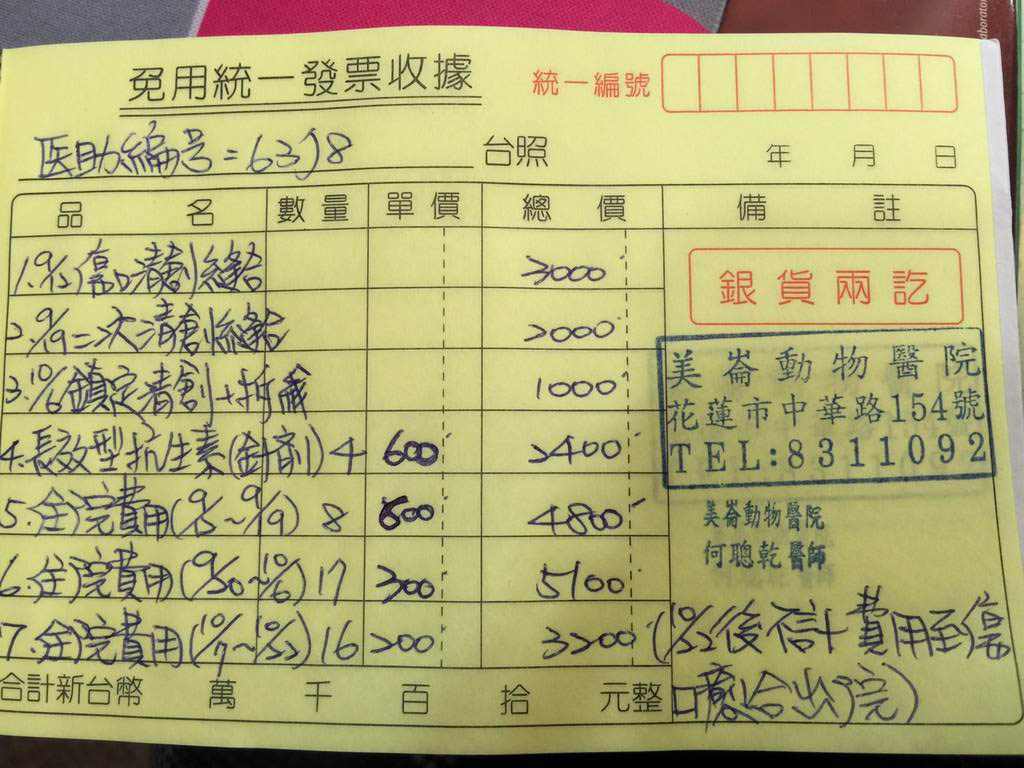 免用統一發票收據
統一編號
医助編号=6318
台照
年 月 日
品名 數量 單價 總價 備註
1. 9/12傷口清創縫合 3000
2. 9/19二次清創縫合 2000
3. 10/6鎮定清創+拆線 1000
4.長效型抗生素(針劑) 4 600 2400
5.住院費用(9/12~9/19) 8 600 4800
6.住院費用(9/20~10/6) 17 300 5100
7.住院費用(10/7~10/22) 16 200 3200
合計新台幣 萬 千 百 拾 元整
銀貨兩訖
美崙動物醫院
花蓮市中華路154號
TEL:8311092
美崙動物醫院
何聰乾醫師
(10/22後不計費用至傷
口癒合出院)